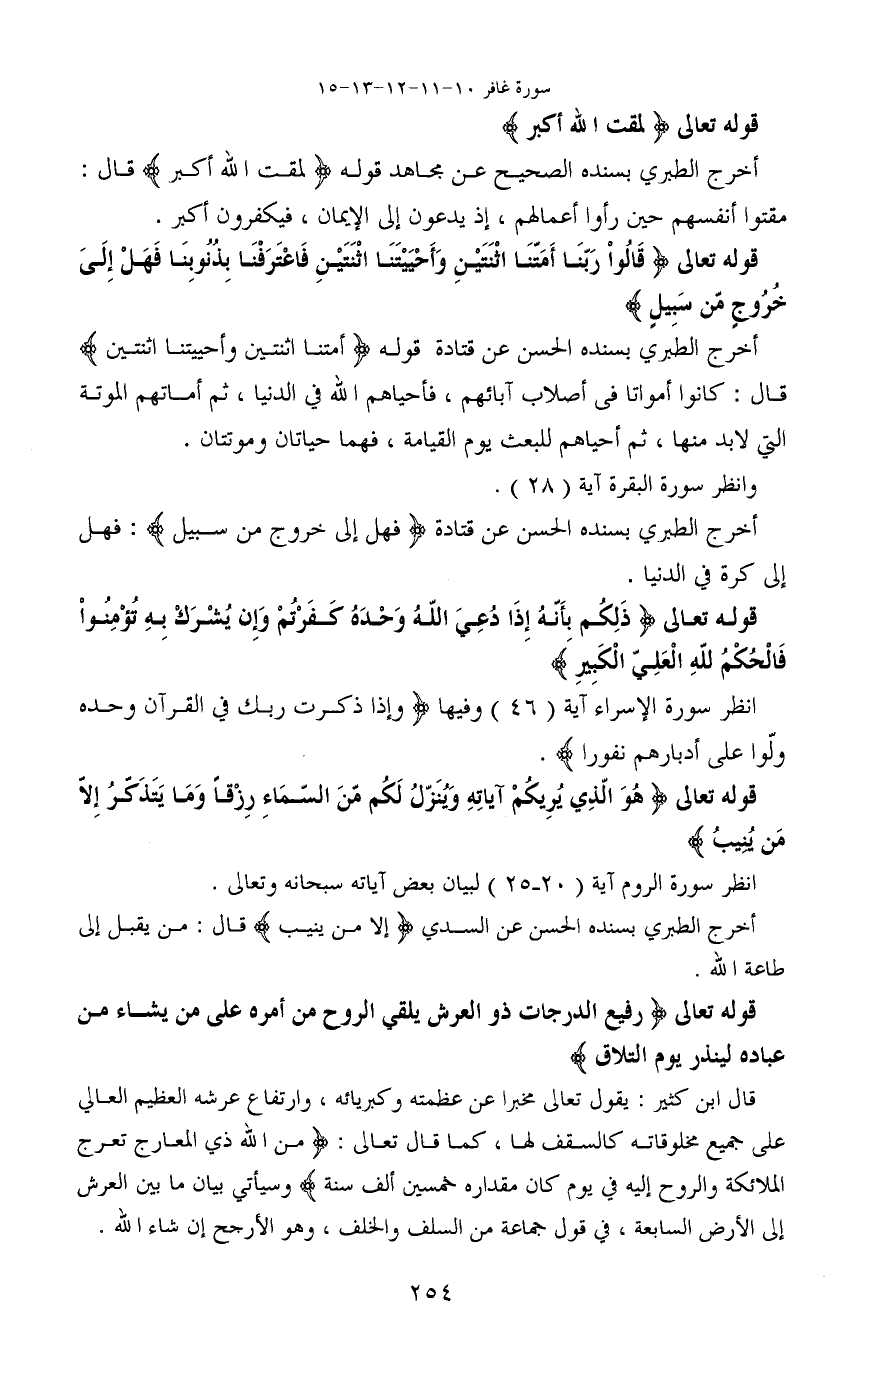 سورة غافر ١٠-١١-١٢-١٣-١٥
قوله تعالى ﴿ لمقت الله أكبر ﴾
أخرج الطبري بسنده الصحيح عن مجاهد قوله ﴿ لمقت الله أكبر ﴾ قال :
مقتوا أنفسهم حين رأوا أعمالهم ، إذ يدعون إلى الإيمان ، فيكفرون أكبر .
قوله تعالى ﴿ قَالُواْ رَبَّنَا أَمَتَّنَا اثْنَتَيْنِ وَأَحْيَيْتَنَا اثْنَتَيْنِ فَاعْتَرَفْنَا بِذُنُوبِنَا فَهَلْ إِلَىَ
خُرُوجٍ مّن سَبِيلٍ ﴾
أخرج الطبري بسنده الحسن عن قتادة قوله ﴿ أمتنا اثنتين وأحييتنا اثنتين ﴾
قال : كانوا أمواتا فى أصلاب آبائهم ، فأحياهم الله في الدنيا ، ثم أماتهم الموتة
التي لابد منها ، ثم أحياهم للبعث يوم القيامة ، فهما حياتان وموتتان .
وانظر سورة البقرة آية ( ٢٨ ) .
أخرج الطبري بسنده الحسن عن قتادة ﴿ فهل إلى خروج من سبيل ﴾ : فهل
إلى كرة في الدنيا .
قوله تعالى ﴿ ذَلِكُم بِأَنّهُ إِذَا دُعِيَ اللّهُ وَحْدَهُ كَفَرْتُمْ وَإِن يُشْرَكْ بِهِ تُؤْمِنُواْ
فَالْحُكْمُ للّهِ الْعَلِيّ الْكَبِيرِ ﴾
انظر سورة الإسراء آية ( ٤٦ ) وفيها ﴿ وإذا ذكرت ربك في القرآن وحده
ولّوا على أدبارهم نفورا ﴾ .
قوله تعالى ﴿ هُوَ الّذِي يُرِيكُمْ آيَاتِهِ وَيُنَزّلُ لَكُم مّنَ السّمَاءِ رِزْقاً وَمَا يَتَذَكّرُ إِلاّ
مَن يُنِيبُ ﴾
انظر سورة الروم آية ( ٢٠-٢٥ ) لبيان بعض آياته سبحانه وتعالى .
أخرج الطبري بسنده الحسن عن السدي ﴿ إلا من ينيب ﴾ قال : من يقبل إلى
طاعة الله .
قوله تعالى ﴿ رفيع الدرجات ذو العرش يلقي الروح من أمره على من يشاء من
عباده لينذر يوم التلاق ﴾
قال ابن كثير : يقول تعالى مخبرا عن عظمته وكبريائه ، وارتفاع عرشه العظيم العالي
على جميع مخلوقاته كالسقف لها ، كما قال تعالى : ﴿ من الله ذي المعارج تعرج
الملائكة والروح إليه في يوم كان مقداره خمسين ألف سنة ﴾ وسيأتي بيان ما بين العرش
إلى الأرض السابعة ، في قول جماعة من السلف والخلف ، وهو الأرجح إن شاء الله .
٢٥٤